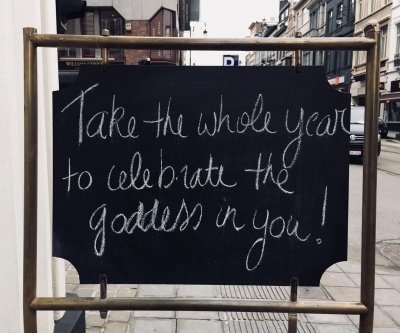 Take the whole year
to celebrate the
goddess in you!